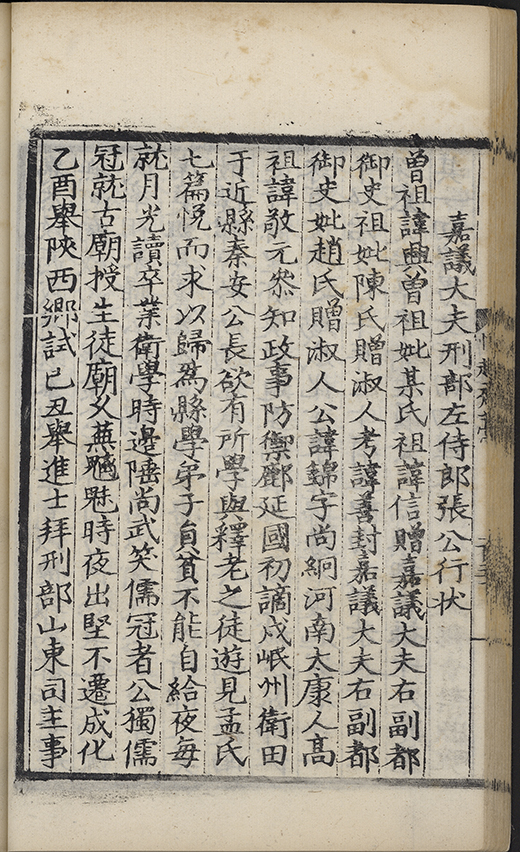 嘉議大夫刑部左侍郎張公行状
曾祖諱興曾祖妣某氏祖諱信贈嘉議大夫右副都
御史祖妣陳氏贈淑人考諱善封嘉議大夫右副都
御史妣趙氏贈淑人公諱錦字尚絅河南太康人高
祖諱敬元叅知政事防禦鄜延國初謫戍岷州衛田
于近縣秦安公長欲有所學與釋老之徒遊見孟氏
七篇悦而求以歸為縣學弟子員貧不能自給夜每
就月光讀卒業衛學時邊陲尚武笑儒冠者公獨儒
冠就古廟授生徒廟久蕪魑魅時夜出堅不遷成化
乙酉舉陜西鄉試己丑舉進士拜刑部山東司主事